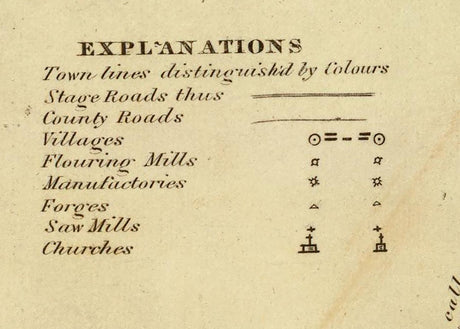 EXPLANATIONS
Town lines distinguish'd by Colours
Stage Roads thus
County Roads
Villages
Flouring Mills
Manufactories
Forges
Saw Mills
Churches
call